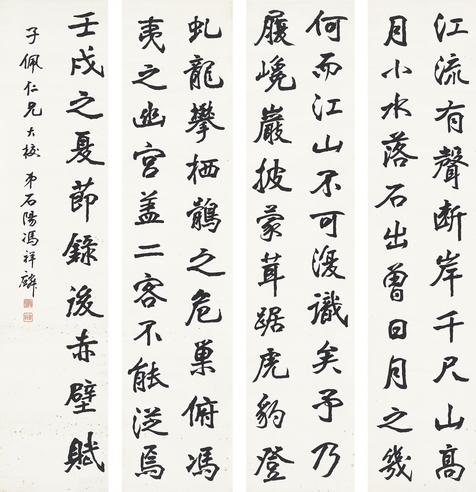 江流有聲斷岸千尺山高
月小水落石出曾日月之幾
何而江山不可復識矣予乃
履巉巖披蒙茸踞虎豹登
虬龍攀栖鶻之危巢俯馮
夷之幽宮蓋二客不能從焉
壬戌之夏節錄後赤壁賦
子佩仁兄大校 弟石陽馮祥麟